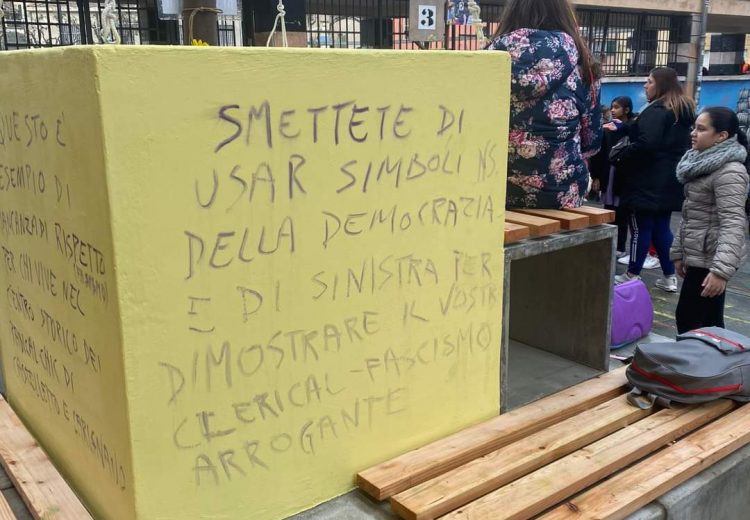 3
QUESTO È
ESEMPIO DI
MANCANZA DI RISPETTO
PER CHI VIVE NEL
CENTRO STORICO DEI
RADICAL CHIC DI
CASTELLETTO E CARIGNANO
SMETTETE DI
USAR SIMBOLI NS.
DELLA DEMOCRAZIA
E DI SINISTRA PER
DIMOSTRARE IL VOSTR
CLERICAL-FASCISMO
ARROGANTE